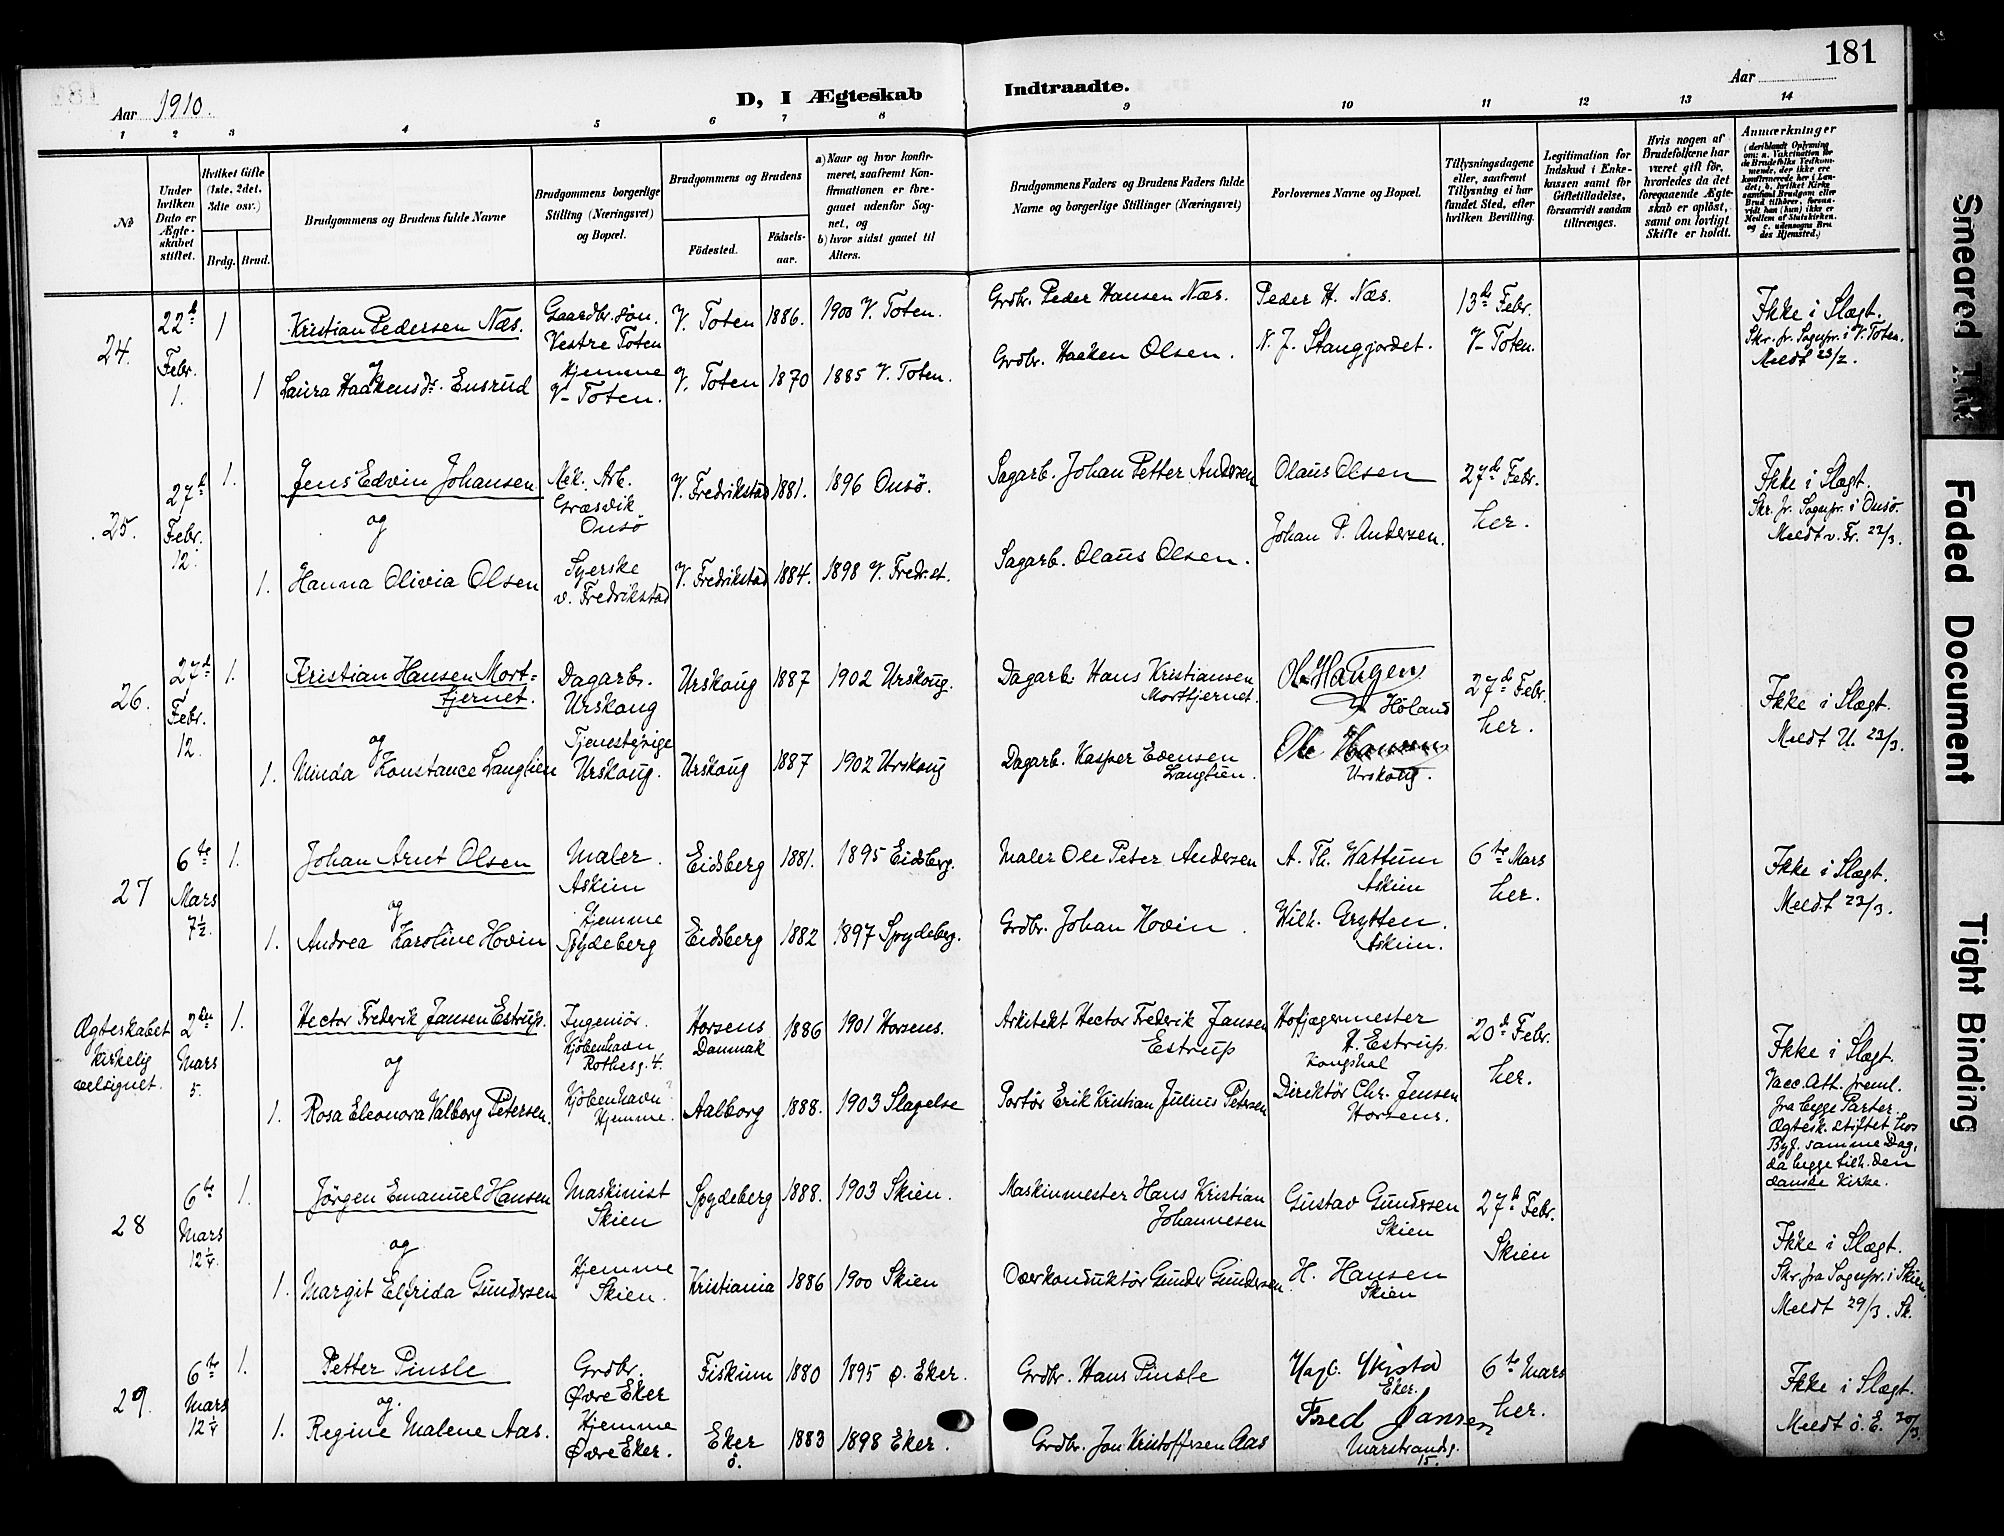 181
Aar 1910.
D, I Ægteskab Indtraadte.
Aar
1 2 3 4 5 6 7 8 9 10 11 12 13 14
№
Under hvilken Dato er Ægteskabet stiftet.
Hvilket Gifte (1ste, 2det, 3dte osv.)
Brdg. Brud.
Brudgommens og Brudens fulde Navne
Brudgommens borgerlige Stilling (Næringsvei) og Bopæl.
Brudgommens og Brudens
Födested. Födselsaar.
a) Naar og hvor konfirmeret, saafremt Konfirmationen er foregaaet udenfor Sognet, og
b) hvor sidst gaaet til Alters.
Brudgommens Faders og Brudens Faders fulde Navne og borgerlige Stillinger (Næringsvei)
Forlovernes Navne og Bopæl.
Tillysningsdagene eller, saafremt Tillysning ei har fundet Sted, efter hvilken Bevilling.
Legitimation for Indskud i Enkekassen samt for Giftetilladelse, forsaavidt saadan tiltrænges.
Hvis nogen af Brudefolkene har været gift för, hvorledes da det foregaaende Ægteskab er oplöst, samt om lovligt Skifte er holdt.
Anmærkninger
(deriblandt Oplysning om: a. Vakcination for de Brudefolks Vedkommende, der ikke ere konfirmerede her i Landet; b. hvilket Kirkesamfund Brudgom eller Brud tilhörer, forsaavidt han (hun) ikke er Medlem af Statskirken, og c. udensogns Brudes Hjemsted.)
24. 22d Febr. 1. 1 Kristian Pedersen Næs. Gaardbr. søn. Vestre Toten V. Toten 1886. 1900 V. Toten. Grdbr. Peder Hansen Næs. Peder H. Næs. 13de Febr. V. Toten. Ikke i Slægt.
Skr. fr. Sognepr. i V. Toten.
Meldt 23/2.
og
1 Laura Haakensdr. Ensrud Hjemme V. Toten. V. Toten 1870 1885 V. Toten. Grdbr. Haaken Olsen. N. J. Stangjordet.
25. 27d Febr. 12. 1. Jens Edvin Johansen Mek. Arb. Græsvik Onsö V. Fredrikstad 1881. 1896 Onsö. Sagarb. Johan Petter Andersen Olaus Olsen 27de Febr. her. Ikke i Slægt.
Skr. fr. Sognepr. i Onsö.
Meldt v. Fr. 22/3.
og
1. Hanna Olivia Olsen Syerske v. Fredrikstad V. Fredrikstad 1884. 1898 V. Fredr.st. Sagarb. Olaus Olsen. Johan P. Andersen.
26. 27d Febr. 12. 1. Kristian Hansen Morttjernet. Dagarb. Urskoug Urskoug 1887 1902 Urskoug. Dagarb. Hans Kristiansen Morttjernet. Ole Haugen Höland 27de Febr. her. Ikke i Slægt.
Meldt U. 23/3.
og
1. Minda Konstance Langlien Tjenestepige Urskoug. Urskoug 1887 1902 Urskoug Dagarb. Kasper Evensen Langlien. Ole Hansen Urskoug.
27 6te Mars 7½. 1. Johan Arnt Olsen Maler. Askim Eidsberg 1881. 1895 Eidsberg. Maler Ole Peter Andersen A. Th. Wattum Askim 6te Mars her. Ikke i Slægt.
Meldt 23/3.
og
1. Andrea Karoline Hovin Hjemme Spydeberg Eidsberg 1882 1897 Spydeberg. Grdbr. Johan Hovin. Wilh. Grytten. Askim.
Ægteskabet kirkelig velsignet. 2den Mars 5. 1. Hector Frederik Jansen Estrup. Ingeniör. Kjöbenhavn Rothesg. 4. Horsens Danmak 1886 1901 Horsens. Arkitekt Hector Frederik Jansen Estrup Hofjægermester H. Estrup. Kongsdal 20de Febr. her. Ikke i Slægt.
Vacc. Att. freml.
fra begge Parter.
Ægtesk. stiftet hos
Byf. samme Dag,
da begge tilh. den
danske Kirke.
og
1. Rosa Eleonora Valborg Petersen. Kjöbenhavn Hjemme. Aalborg 1888. 1903 Slagelse Portör Erik Kristian Julius Petersen Direktör Chr. Jensen Horsens.
28 6te Mars 12¼. 1. Jörgen Emanuel Hansen Maskinist Skien Spydeberg 1888. 1903 Skien. Maskinmester Hans Kristian Johannesen Gustav Gundersen Skien 27d Febr. Skien Ikke i Slægt.
Skr. fra Sognepr. i Skien.
Meldt 29/3. Sk.
og
1. Margit Elfrida Gundersen Hjemme Skien. Kristiania 1886 1900 Skien Overkonduktör Gunder Gundersen. H. Hansen Skien
29. 6te Mars 12¼ 1. Petter Pinsle Grdbr. Øvre Eker Fiskum 1880 1895 ø. Eker. Grdbr. Hans Pinsle Eker. 6te Mars her. Ikke i Slægt.
Meldt ö. E. 30/3.
og
1. Regine Malene Aas. Hjemme Øvre Eker. Eker ö. 1883 1898 Eker. Grdbr. Jon Kristoffersen Aas Fred Jansen Marstrandg. 15.
Smeared Ink
Faded Document
Tight Binding